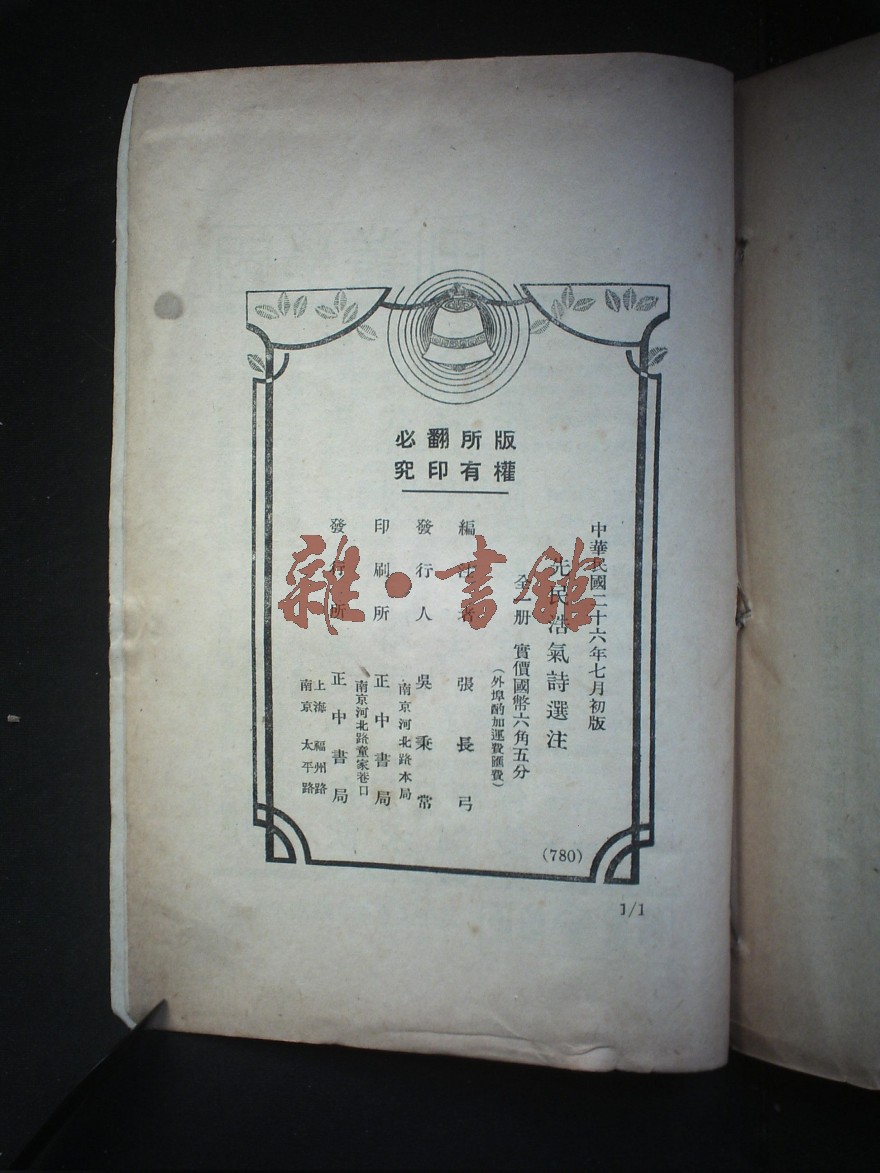 版權所有
翻印必究
中華民國二十六年七月初版
先民浩氣詩選注
全一册 實價國幣六角五分
(外埠酌加運費匯費)
編注者 張長弓
發行人 吳秉常
南京河北路本局
印刷所 正中書局
南京河北路童家巷口
發行所 正中書局
上海福州路
南京太平路
(780)
1/1
雜·書館